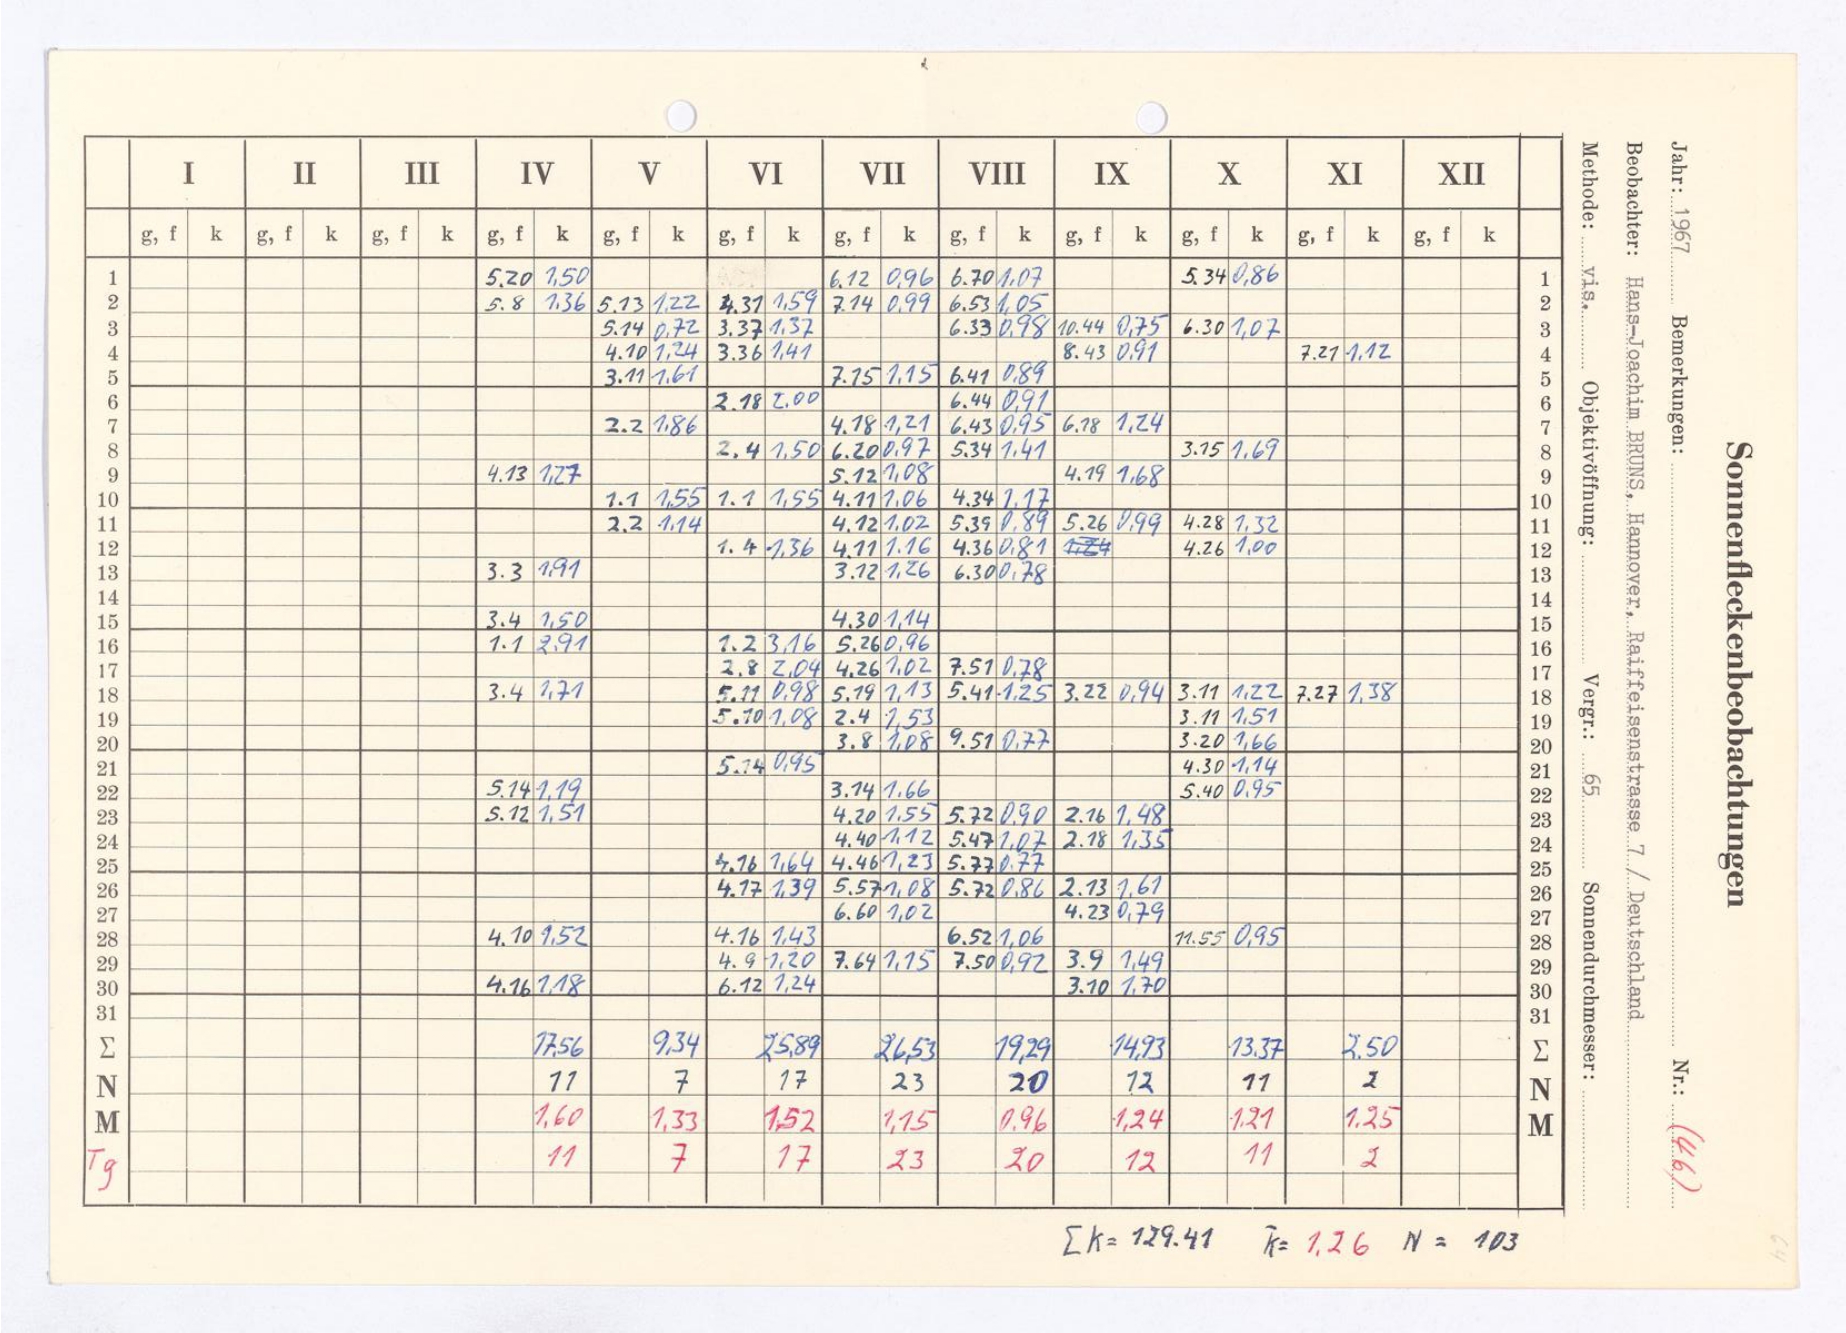 Sonnenfleckenbeobachtungen
Jahr: 1967 Bemerkungen: Nr.: (46)
Beobachter: Hans-Joachim BRUNS, Hannover, Raiffeisenstrasse 7 / Deutschland
Methode: vis. Objektivöffnung: Vergr.: 65 Sonnendurchmesser:
I II III IV V VI VII VIII IX X XI XII
g, f k g, f k g, f k g, f k g, f k g, f k g, f k g, f k g, f k g, f k g, f k g, f k
1 5.20 1,50 6.12 0,96 6.70 1,07 5.34 0,86 1
2 5.8 1,36 5.13 1,22 4.31 1,59 7.14 0,99 6.53 1,05 2
3 5.14 0,72 3.37 1,37 6.33 0,98 10.44 0,75 6.30 1,07 3
4 4.10 1,24 3.36 1,41 8.43 0,91 7.21 1,12 4
5 3.11 1,61 7.15 1,15 6.41 0,89 5
6 2.18 2,00 6.44 0,91 6
7 2.2 1,86 4.18 1,21 6.43 0,95 6.18 1,24 7
8 2.4 1,50 6.20 0,97 5.34 1,41 3.15 1,69 8
9 4.13 1,27 5.12 1,08 4.19 1,68 9
10 1.1 1,55 1.1 1,55 4.11 1,06 4.34 1,17 10
11 2.2 1,14 4.12 1,02 5.39 0,89 5.26 0,99 4.28 1,32 11
12 1.4 1,36 4.11 1.16 4.36 0,81 1,24 4.26 1,00 12
13 3.3 1,91 3.12 1,26 6.30 0,78 13
14 14
15 3.4 1,50 4.30 1,14 15
16 1.1 2,91 1.2 3,16 5.26 0,96 16
17 2.8 2,04 4.26 1,02 7.51 0,78 17
18 3.4 1,71 5.11 0,98 5.19 1,13 5.41 1.25 3.22 0,94 3.11 1,22 7.27 1,38 18
19 5.10 1,08 2.4 1,53 3.11 1,51 19
20 3.8 1,08 9.51 0,77 3.20 1,66 20
21 5.14 0,95 4.30 1,14 21
22 5.14 1,19 3.14 1.66 5.40 0,95 22
23 5.12 1,51 4.20 1,55 5.72 0,90 2.16 1,48 23
24 4.40 1,12 5.47 1,07 2.18 1,35 24
25 4.16 1,64 4.46 1,23 5.77 0,77 25
26 4.17 1,39 5.57 1,08 5.72 0,86 2.13 1,61 26
27 6.60 1,02 4.23 0,79 27
28 4.10 1,52 4.16 1,43 6.52 1,06 11.55 0,95 28
29 4.9 1,20 7.64 1,15 7.50 0,92 3.9 1,49 29
30 4.16 1,18 6.12 1,24 3.10 1,70 30
31 31
Σ 17,56 9,34 25,89 26,53 19,29 14,93 13.37 2.50 Σ
N 11 7 17 23 20 12 11 2 N
M 1,60 1,33 1,52 1,15 0.96 1,24 1,21 1.25 M
Tg 11 7 17 23 20 12 11 2
Σk= 129.41 k̄= 1,26 N = 103
64